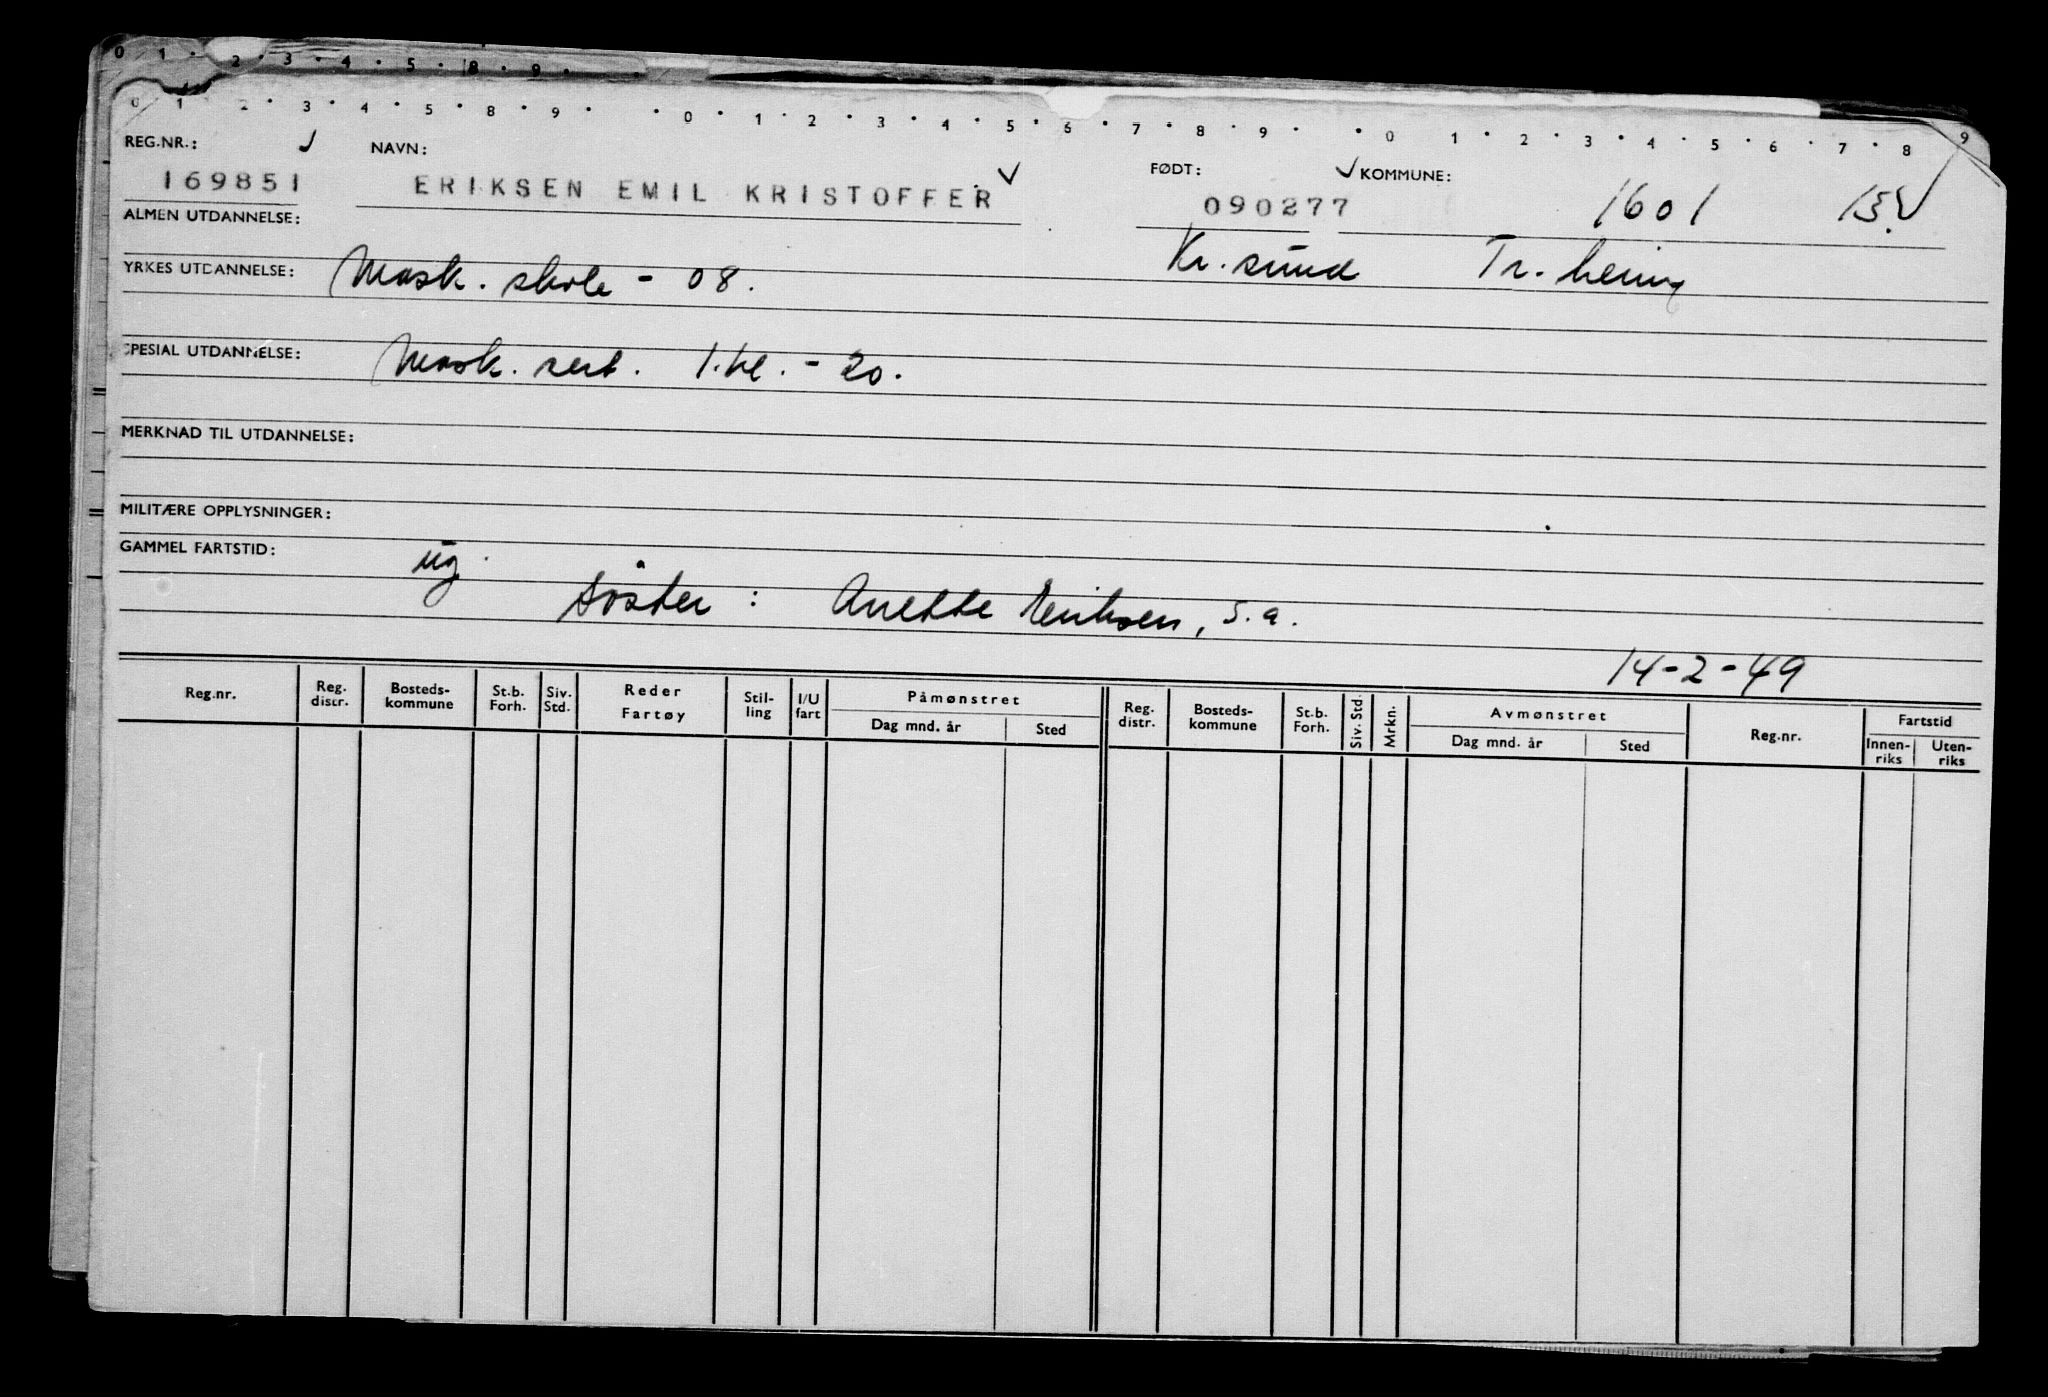 0 1 · 2 · 3 · 4 · 5 · 8 · 9 ·
0 1 · 2 · 3 · 4 · 5 · 8 · 9 · · 0 · 1 · 2 · 3 · 4 · 5 · 6 · 7 · 8 · 9 · · 0 1 · 2 · 3 · 4 · 5 · 6 · 7 · 8 9
REG.NR.: NAVN: FØDT: KOMMUNE:
169851 ERIKSEN EMIL KRISTOFFER 090277 1601
ALMEN UTDANNELSE:
Kr.sund Tr.heim
YRKES UTDANNELSE: Mask. skole - 08.
SPESIAL UTDANNELSE: Mask. sert. 1.kl. - 20.
MERKNAD TIL UTDANNELSE:
MILITÆRE OPPLYSNINGER:
GAMMEL FARTSTID: ug.
søster : Anette Eriksen, s.a.
14-2-49
Reg.nr. Reg. distr. Bosteds- kommune St.b. Forh. Siv. Std. Reder Fartøy Stil- ling I/U fart Påmønstret Reg. distr. Bosteds- kommune St.b. Forh. Siv. Std. Mrkn. Avmønstret Reg.nr. Fartstid
Dag mnd. år Sted Dag mnd. år Sted Innen- riks Uten- riks